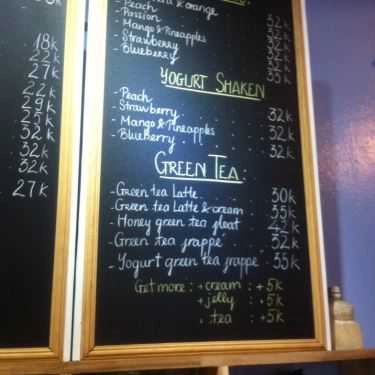 18k
22k
27k
22k
29k
25k
32k
32k
32k
27k
& orange
- Peach 32k
- Passion 32k
- Mango & Pineapples 32k
- Strawberry 32k
- Blueberry 35k
YOGURT SHAKEN
- Peach
- Strawberry 32k
- Mango & Pineapples 32k
- Blueberry 32k
GREEN TEA :
- Green tea Latte 30k
- Green tea Latte & cream 35k
- Honey green tea float 42k
- Green tea frappe 32k
- Yogurt green tea frappe 35k
Get more : + cream : + 5k
+ jelly : + 5k
+ tea : + 5k